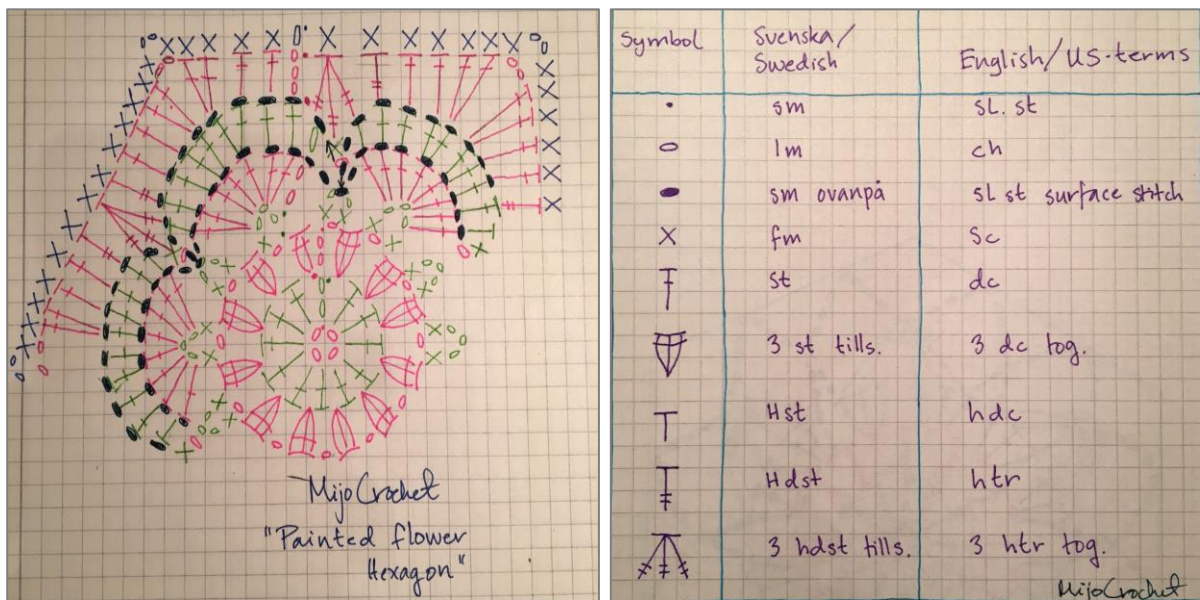 MijoCrochet
"Painted flower
Hexagon"
Symbol Svenska/ English/US-terms
Swedish
sm sl. st
lm ch
sm ovanpå sl st surface stitch
fm Sc
st dc
3 st tills. 3 dc tog.
Hst hdc
Hdst htr
3 hdst tills. 3 htr tog.
MijoCrochet